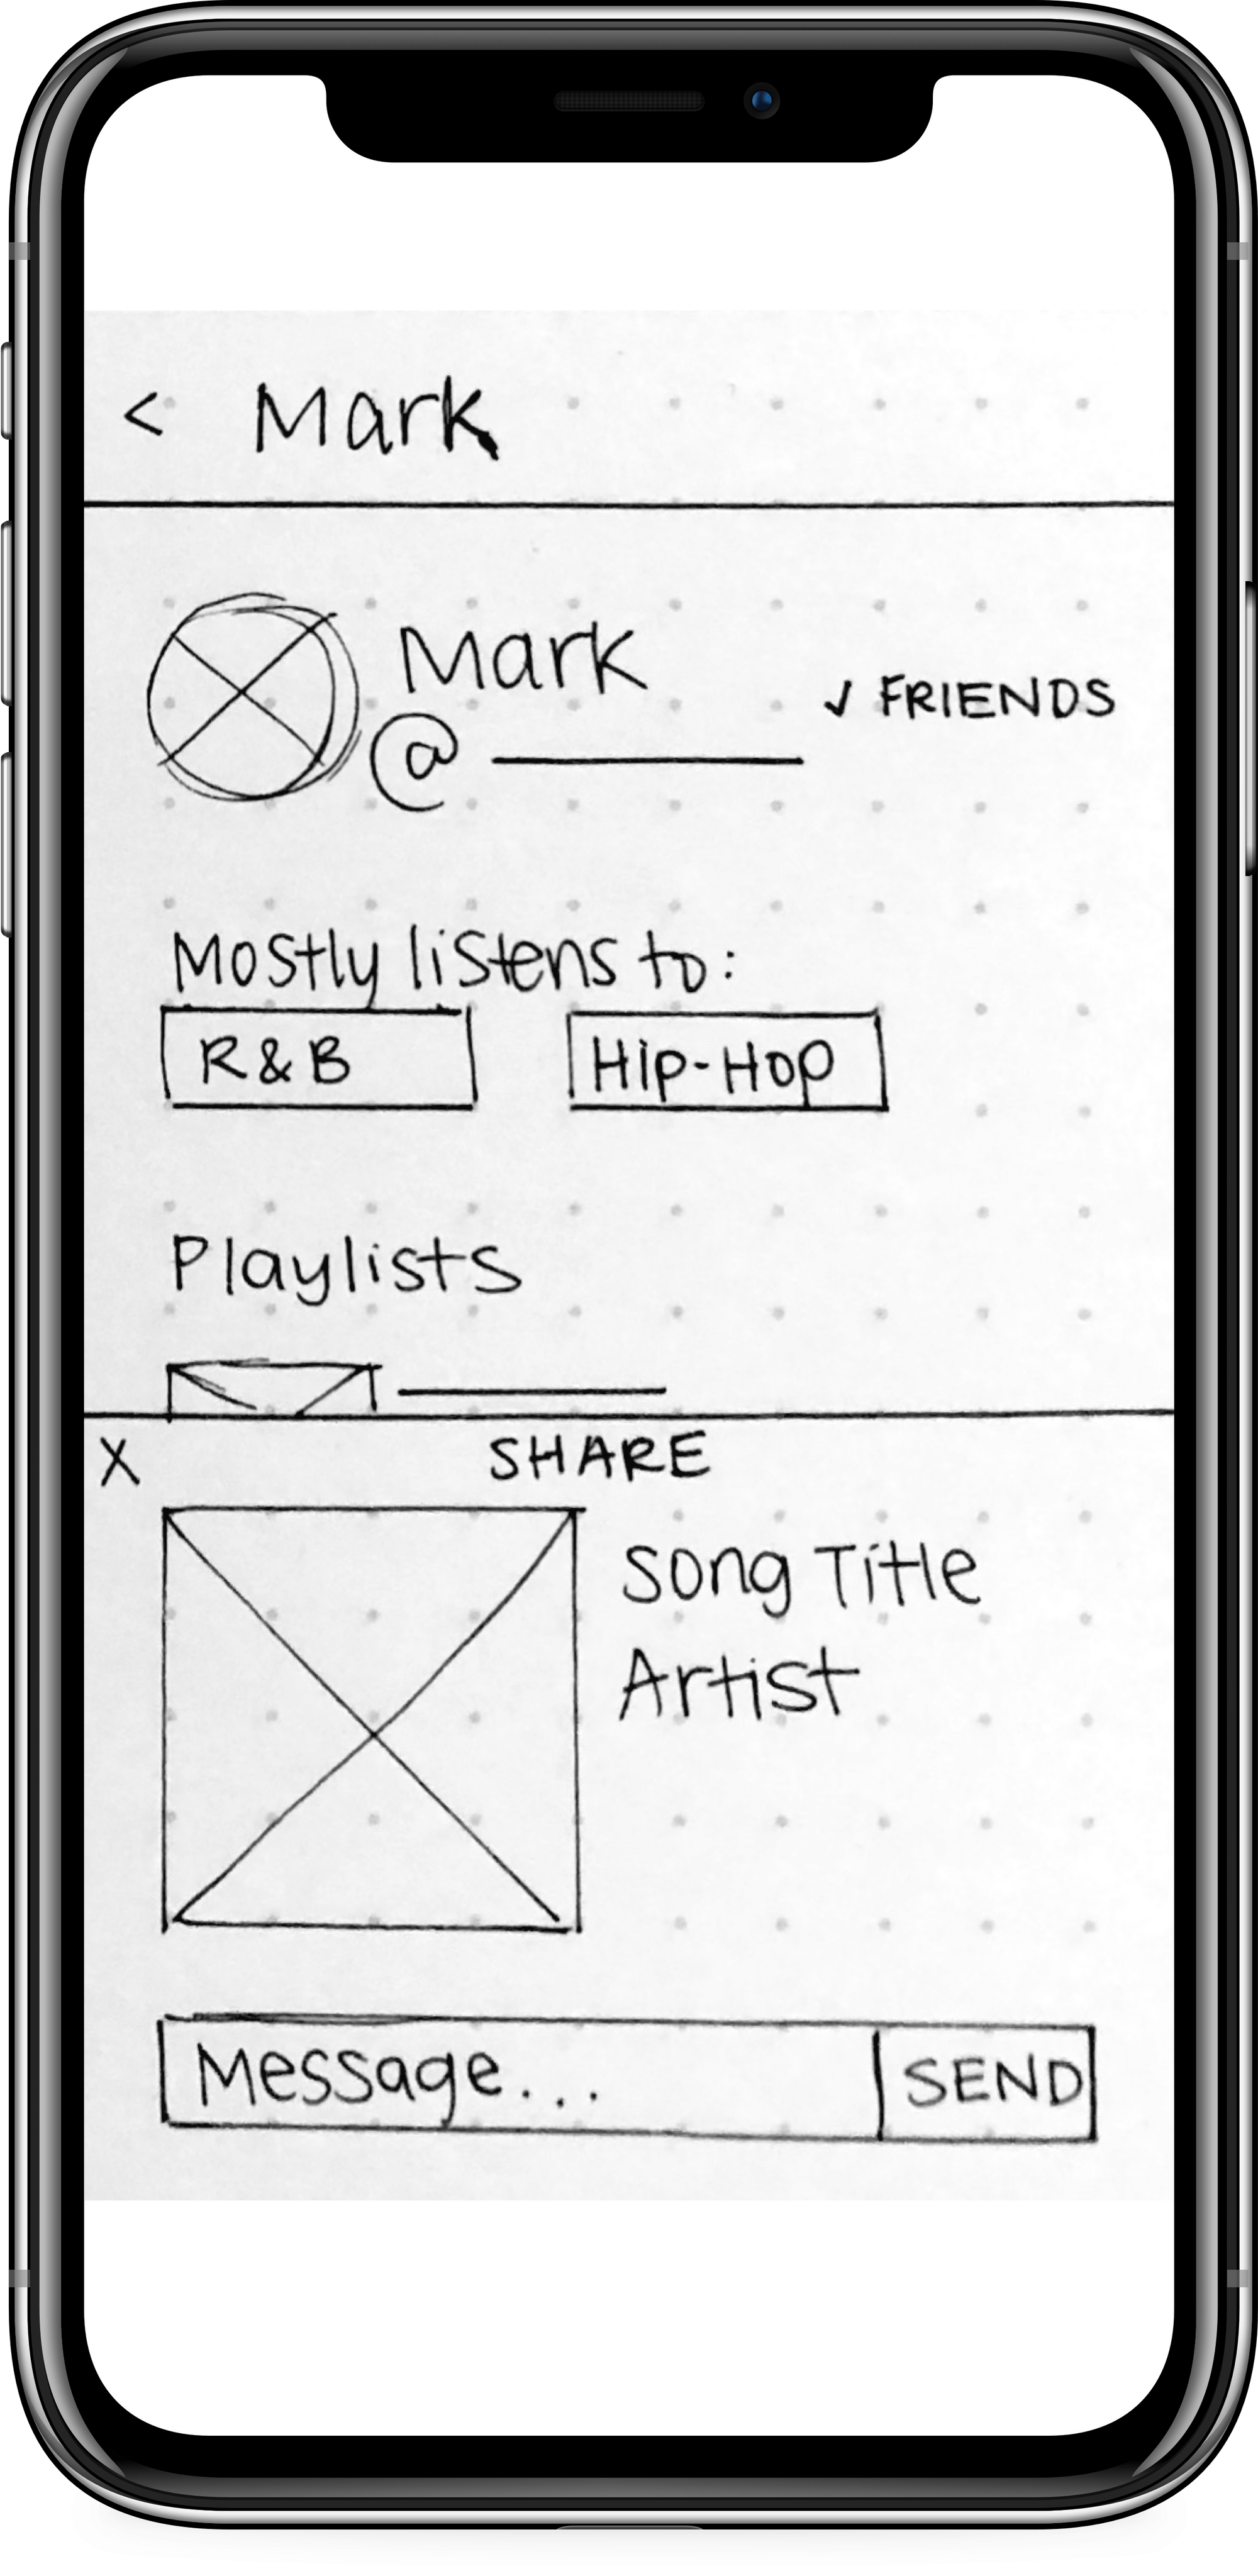 < Mark
Mark
@
✓ FRIENDS
Mostly listens to:
R&B
Hip-Hop
Playlists
X SHARE
Song Title
Artist
Message...
SEND